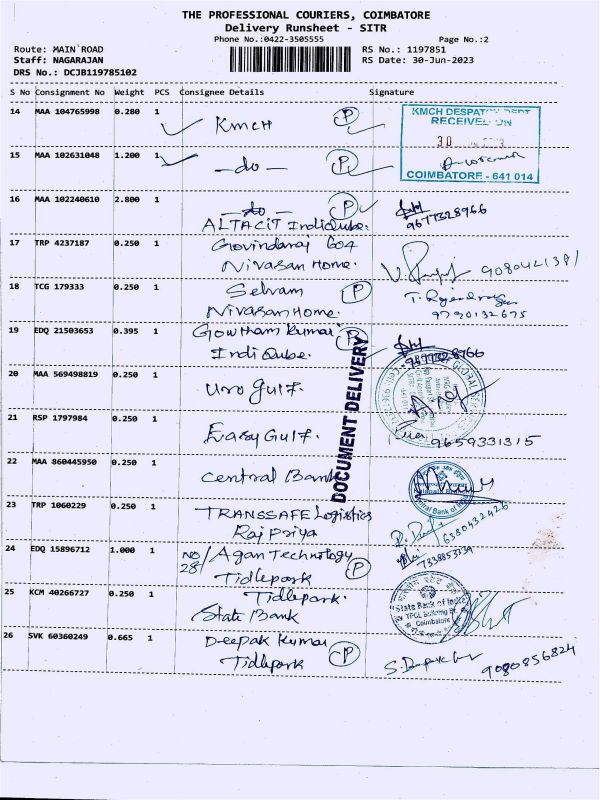 THE PROFESSIONAL COURIERS, COIMBATORE
Delivery Runsheet - SITR
Phone No.:0422-3505555 Page No.:2
Route: MAIN ROAD RS No.: 1197851
Staff: NAGARAJAN RS Date: 30-Jun-2023
DRS No.: DCJB119785102
S No Consignment No Weight PCS Consignee Details Signature
14 MAA 104765998 0.280 1 KMCH P
KMCH DESPATCH DEPT
RECEIVED ON
30
COIMBATORE - 641 014
15 MAA 102631048 1.200 1 -do- P
16 MAA 102240610 2.800 1 -do- P
ALTACIT IndiQube. 9677328966
17 TRP 4237187 0.250 1 Govindaraj 604
Nivasan Home. 9080421381
18 TCG 179333 0.250 1 Selvam P T. Rajendran
Nivasan Home. 9790132675
19 EDQ 21503653 0.395 1 Gowtham Kumar P
IndiQube.
DOCUMENT DELIVERY
20 MAA 569498819 0.250 1 Uro Gulf.
21 RSP 1797984 0.250 1 Easy Gulf. 9659331315
22 MAA 860445950 0.250 1 Central Bank
23 TRP 1060229 0.250 1 TRANSSAFE Logistics
Raj Priya 6380432426
24 EDQ 15896712 1.000 1 NO/28 Agan Technology P
Tidlepark
25 KCM 40266727 0.250 1 Tidlepark.
State Bank
State Bank of India
TPCL Building Br.
Coimbatore
26 SVK 60360249 0.665 1 Deepak Kumar P S. Deepak
Tidlepark 9080856824